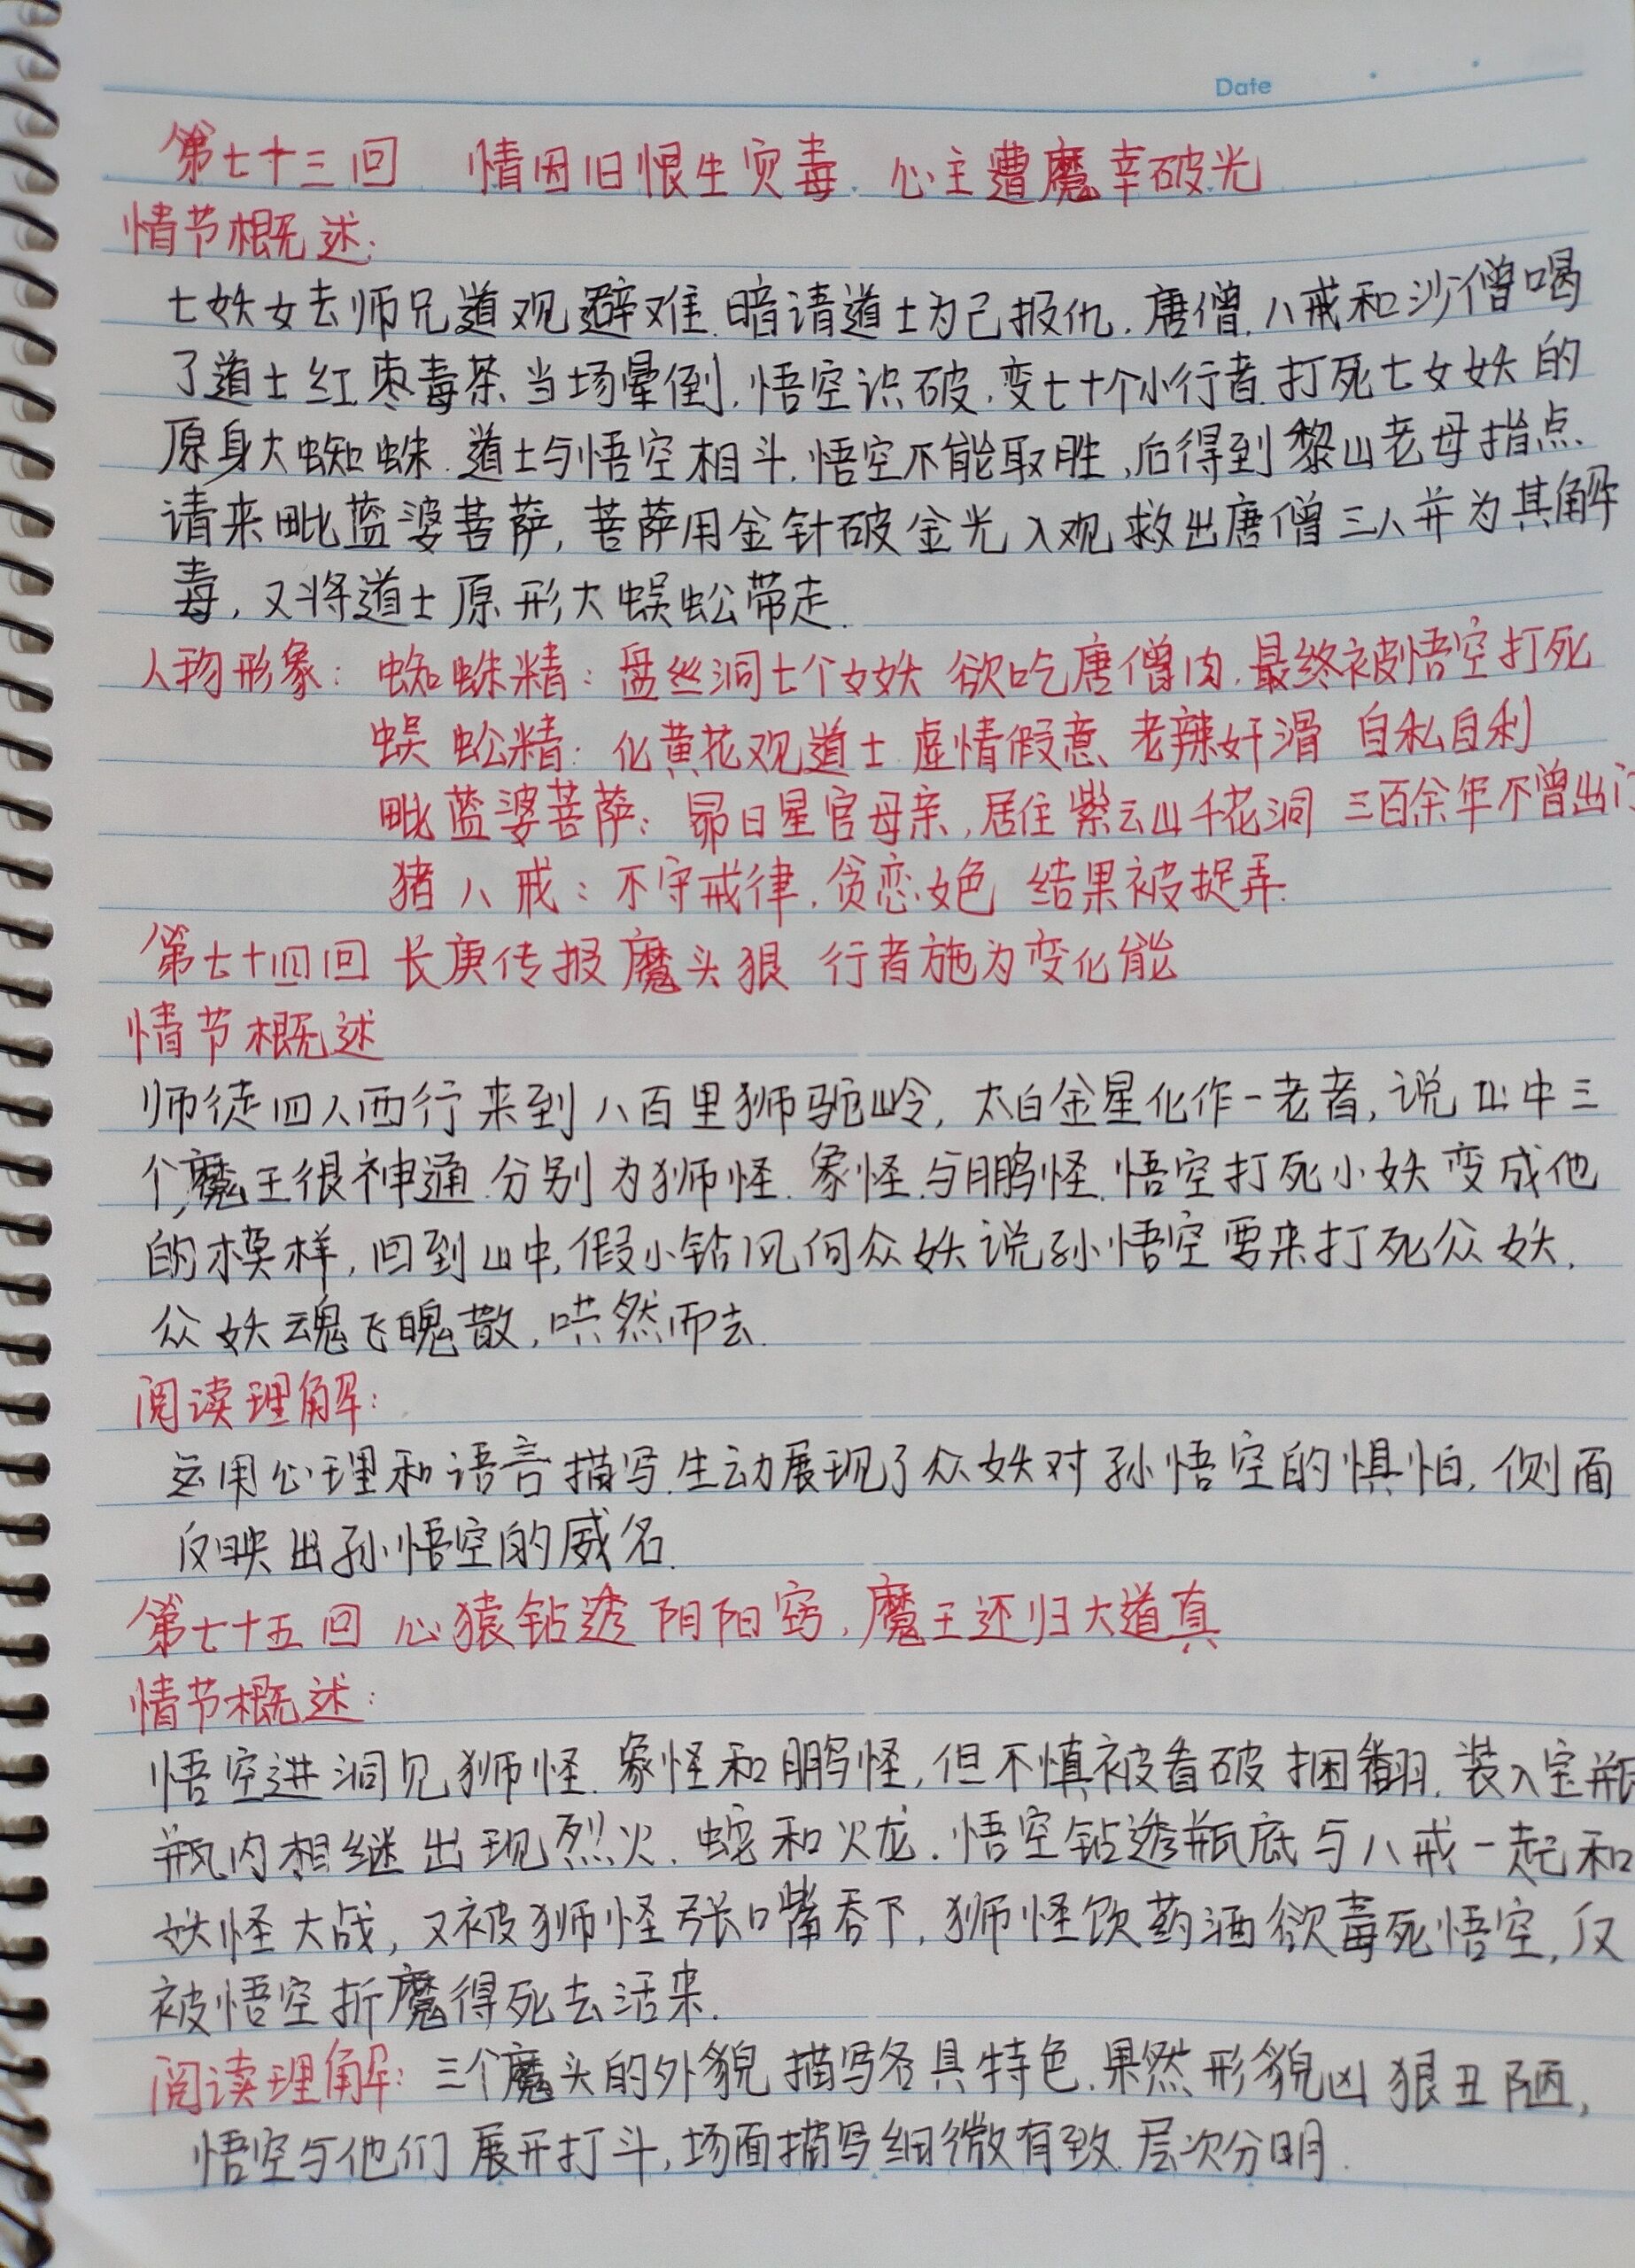 Date
第七十三回 情因旧恨生灾毒.心主遭魔幸破光
情节概述:
七妖女去师兄道观避难.暗请道士为己报仇.唐僧.八戒和沙僧喝
了道士红枣毒茶.当场晕倒.悟空识破.变七十个小行者.打死七女妖的
原身大蜘蛛.道士与悟空相斗.悟空不能取胜,后得到黎山老母指点.
请来毗蓝婆菩萨,菩萨用金针破金光入观救出唐僧三人并为其解
毒,又将道士原形大蜈蚣带走.
人物形象: 蜘蛛精:盘丝洞七个女妖 欲吃唐僧肉.最终被悟空打死
蜈蚣精:化黄花观道士 虚情假意 老辣奸滑 自私自利
毗蓝婆菩萨:昴日星官母亲,居住紫云山千花洞 三百余年不曾出门
猪八戒:不守戒律.贪恋女色 结果被捉弄.
第七十四回 长庚传报魔头狠 行者施为变化能
情节概述
师徒四人西行来到八百里狮驼岭,太白金星化作一老者,说山中三
个魔王很神通.分别为狮怪.象怪.与鹏怪.悟空打死小妖变成他
的模样,回到山中,假小钻风向众妖说孙悟空要来打死众妖.
众妖魂飞魄散,哄然而去.
阅读理解:
运用心理和语言描写.生动展现了众妖对孙悟空的惧怕,侧面
反映出孙悟空的威名.
第七十五回 心猿钻透阴阳窍,魔王还归大道真
情节概述:
悟空进洞见狮怪.象怪和鹏怪,但不慎被看破捆翻.装入宝瓶
瓶内相继出现烈火.蛇和火龙.悟空钻透瓶底与八戒一起和
妖怪大战,又被狮怪张口嘴吞下,狮怪饮药酒欲毒死悟空,反
被悟空折魔得死去活来.
阅读理解:三个魔头的外貌描写各具特色.果然形貌凶狠丑陋,
悟空与他们展开打斗,场面描写细微有致.层次分明.